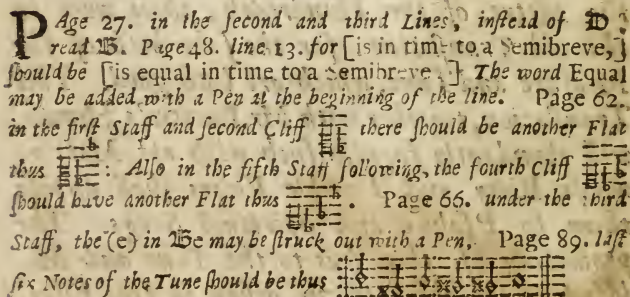 PAge 27. in the ſecond and third Lines, inſtead of D.
read B. Page 48. line 13. for [is in time to a Semibreve,]
ſhould be [is equal in time to a Semibreve.] The word Equal
may be added with a Pen at the beginning of the line. Page 62.
in the firſt Staff and ſecond Cliff there ſhould be another Flat
thus : Alſo in the fifth Staff following, the fourth Cliff
ſhould have another Flat thus . Page 66. under the third
Staff, the (e) in Be may be ſtruck out with a Pen, Page 89. laſt
ſix Notes of the Tune ſhould be thus